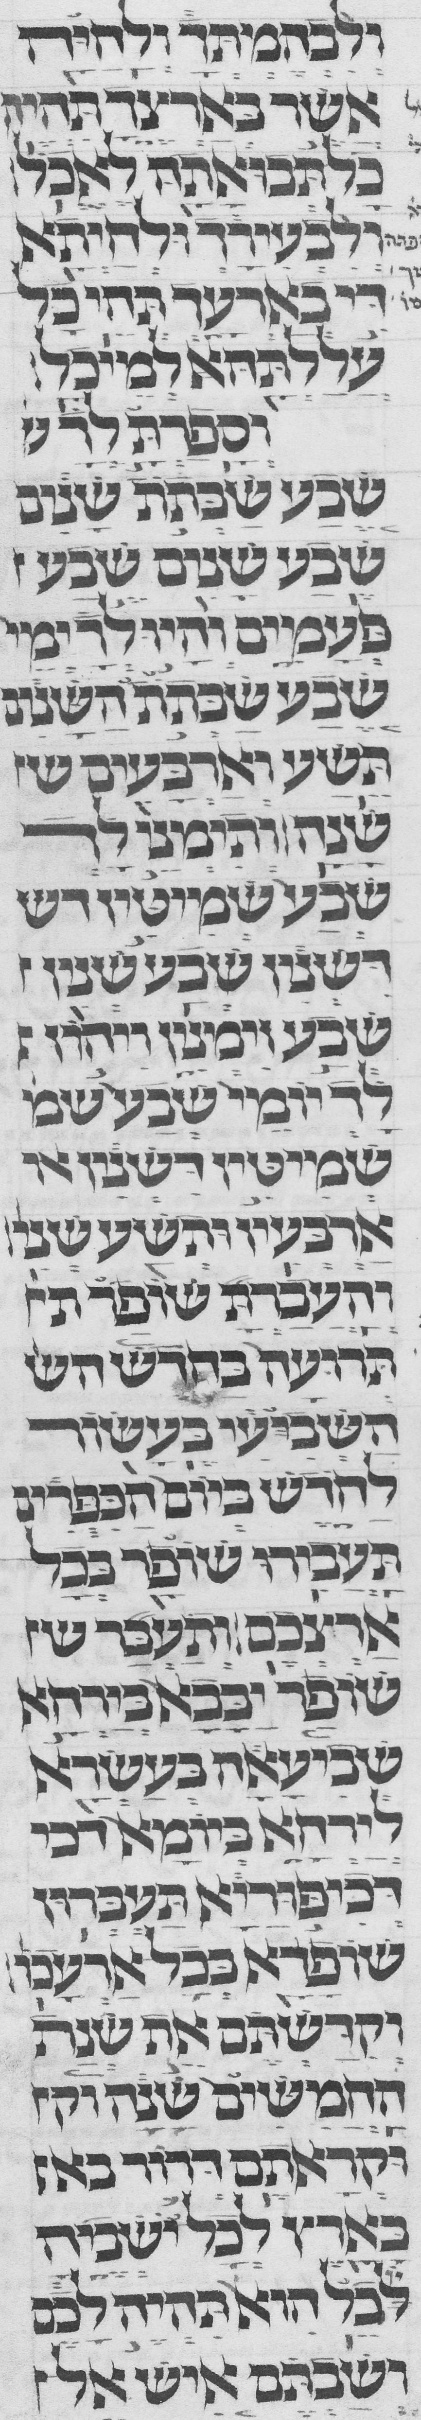 ולבהמתך ולחיה
אשר בארצך תהיה
כל תבואתה לאכל
ולבעירך ולחיתא
די בארעך תהי כל
עללתהא למיכל
וספרת לך ש
שבע שבתת שנים
שבע שנים שבע
פעמים והיו לך ימי
שבע שבתת השנים
תשע וארבעים ש
שנה ותימני לך
שבע שמיטין דש
דשנין שבע שנין
שבע זימנין ויהון
לך יומי שבע שמ
שמיטין דשנין אר
ארבעין ותשע שנין
והעברת שופר ת
תרועה בחדש הש
השביעי בעשור
לחדש ביום הכפרים
תעבירו שופר בכל
ארצכם ותעבר ש
שופר יבבא בירחא
שביעאה בעשרא
לירחא ביומא דכי
דכיפוריא תעברון
שופרא בכל ארעכון
וקדשתם את שנת
החמשים שנה וק
וקראתם דרור בא
בארץ לכל ישביה
יובל הוא תהיה לכם
ושבתם איש אל